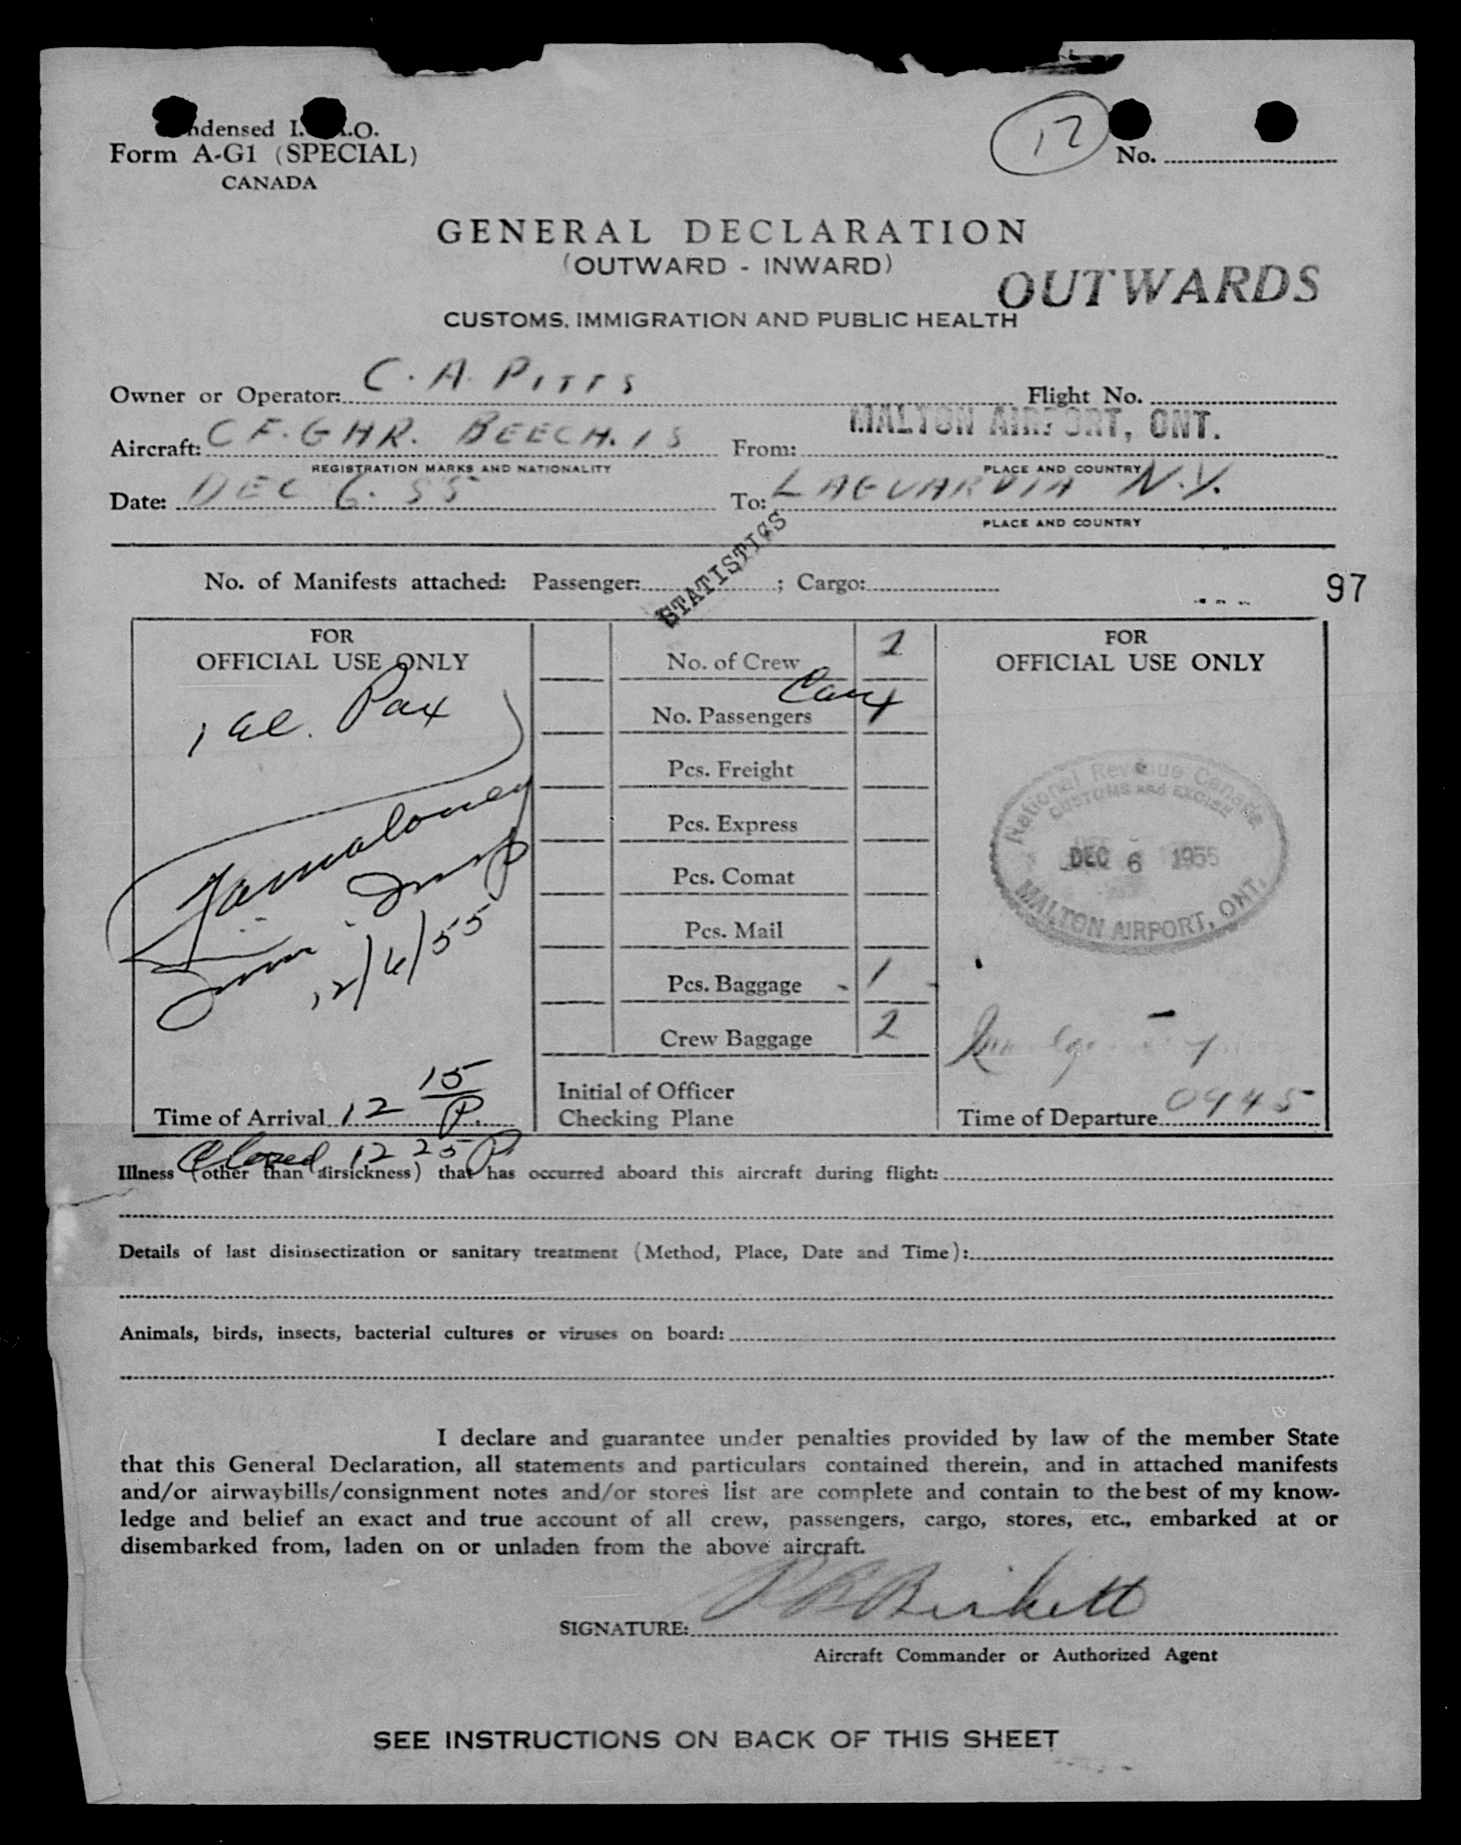 ndensed I. .O.
Form A-G1 (SPECIAL)
CANADA
12
No.
GENERAL DECLARATION
(OUTWARD - INWARD)
OUTWARDS
CUSTOMS, IMMIGRATION AND PUBLIC HEALTH
Owner or Operator: C. A. PITTS Flight No.
Aircraft: CF-GHR. BEECH. 18 From: MALTON AIRPORT, ONT.
REGISTRATION MARKS AND NATIONALITY PLACE AND COUNTRY
Date: DEC 6. 55 To: LAGUARDIA N.Y.
PLACE AND COUNTRY
STATISTICS
No. of Manifests attached: Passenger: ; Cargo: 97
FOR
OFFICIAL USE ONLY
1 al. Pax
Insp
12/6/55
Time of Arrival 12 15 P.
Closed 12 25 P
No. of Crew 2
No. Passengers 1
Pcs. Freight
Pcs. Express
Pcs. Comat
Pcs. Mail
Pcs. Baggage - 1 -
Crew Baggage 2
Initial of Officer
Checking Plane
FOR
OFFICIAL USE ONLY
National Revenue Canada
CUSTOMS AND EXCISE
DEC 6 1955
MALTON AIRPORT, ONT.
Time of Departure 0945
Illness (other than airsickness) that has occurred aboard this aircraft during flight:
Details of last disinsectization or sanitary treatment (Method, Place, Date and Time):
Animals, birds, insects, bacterial cultures or viruses on board:
I declare and guarantee under penalties provided by law of the member State
that this General Declaration, all statements and particulars contained therein, and in attached manifests
and/or airwaybills/consignment notes and/or stores list are complete and contain to the best of my know-
ledge and belief an exact and true account of all crew, passengers, cargo, stores, etc., embarked at or
disembarked from, laden on or unladen from the above aircraft.
SIGNATURE: Birkett
Aircraft Commander or Authorized Agent
SEE INSTRUCTIONS ON BACK OF THIS SHEET